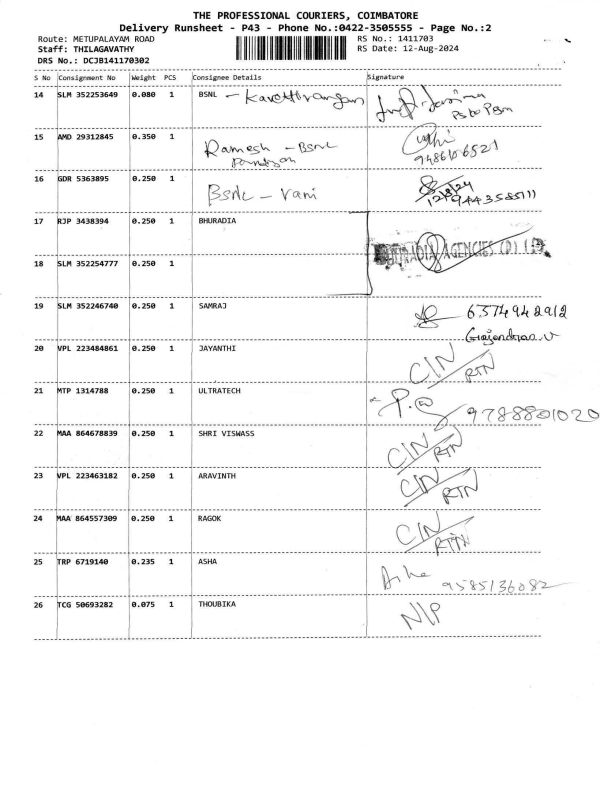 THE PROFESSIONAL COURIERS, COIMBATORE
Delivery Runsheet - P43 - Phone No.:0422-3505555 - Page No.:2
Route: METUPALAYAM ROAD RS No.: 1411703
Staff: THILAGAVATHY RS Date: 12-Aug-2024
DRS No.: DCJB141170302
S No Consignment No Weight PCS Consignee Details Signature
14 SLM 352253649 0.080 1 BSNL
15 AMD 29312845 0.350 1 Ramesh - Bsnl
9486106521
16 GDR 5363895 0.250 1 Bsnl - Vani 12/8/24
9443585111
17 RJP 3438394 0.250 1 BHURADIA
AGENCIES (P) LTD
18 SLM 352254777 0.250 1
19 SLM 352246740 0.250 1 SAMRAJ 6374942912
Gajendran.V
20 VPL 223484861 0.250 1 JAYANTHI CIN/RTN
21 MTP 1314788 0.250 1 ULTRATECH 9788801020
22 MAA 864678839 0.250 1 SHRI VISWASS CIN/RTN
23 VPL 223463182 0.250 1 ARAVINTH CIN/RTN
24 MAA 864557309 0.250 1 RAGOK CIN/RTN
25 TRP 6719140 0.235 1 ASHA Asha 9585136082
26 TCG 50693282 0.075 1 THOUBIKA N/P